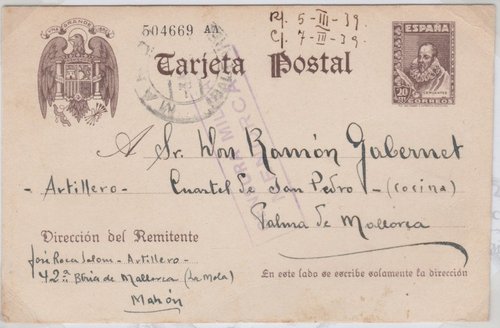 504669 AA
R/. 5-III-39
C/. 7-III-39
UNA GRANDE LIBRE
ESPAÑA
CERVANTES
20
CORREOS
Tarjeta Postal
A Sr. Don Ramón Gabernet
- Artillero - Cuartel de San Pedro - (cocina)
Palma de Mallorca
Dirección del Remitente
José Roca Salom - Artillero -
42ª Bbria de Mallorca (La Mola)
Mahón
En este lado se escribe solamente la dirección